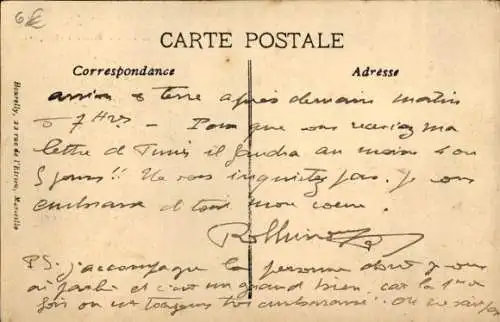 6€
CARTE POSTALE
Correspondance
Adresse
arrive à terre après demain matin
à 7 Hrs - Pour que vous receviez ma
lettre de Tunis il faudra au moins 4 ou
5 jours!! Ne vous inquiétez pas. Je vous
embrasse de tout mon coeur.
PS. j'accompagne la personne dont je vous
ai parlé et c'est un grand bien, car la 1ère
fois on est toujours
Marseille